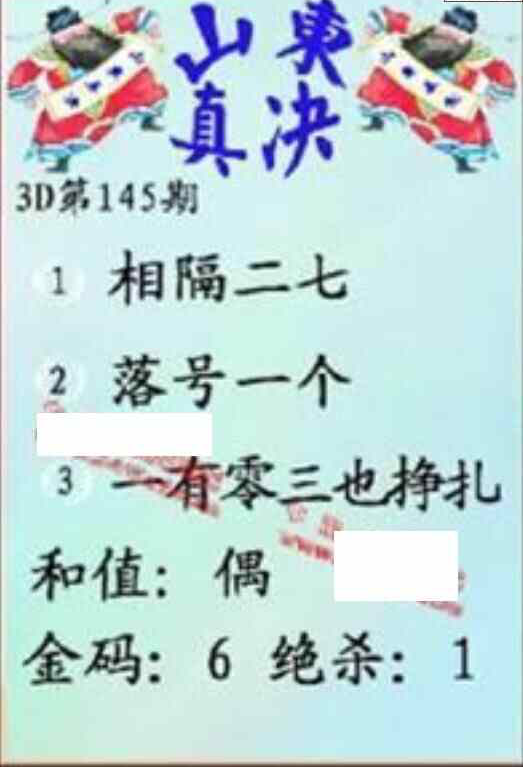 山東
真决
3D第145期
1 相隔二七
2 落号一个
3 一有零三也挣扎
和值：偶
金码：6 绝杀：1